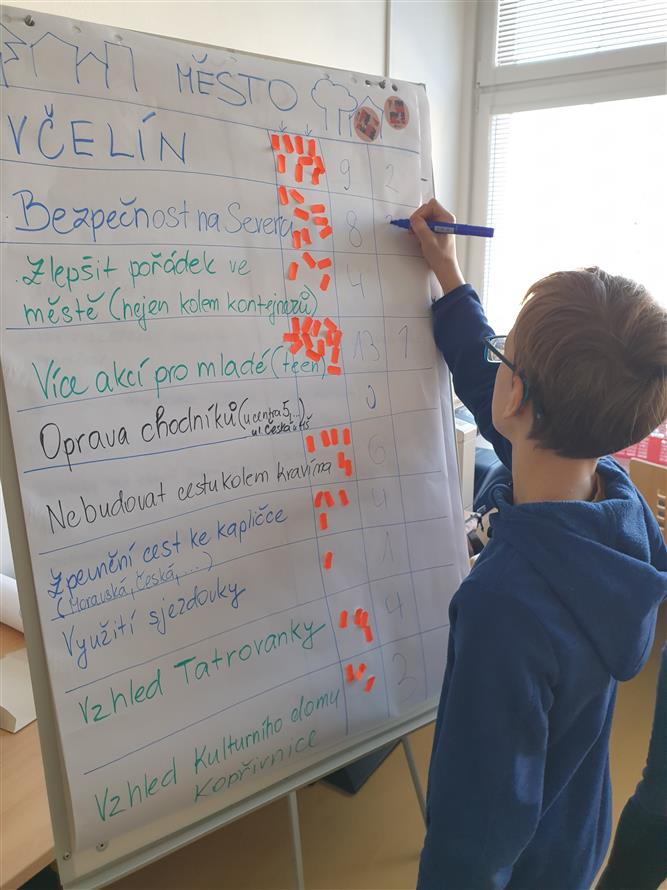 MĚSTO
VČELÍN 9 2
Bezpečnost na Severu 8
Zlepšit pořádek ve
městě (nejen kolem kontejnarů) 4
Více akcí pro mladé (teen) 13 1
Oprava chodníků (u centra 5, ...) 0
ul. Česká
Nebudovat cestu kolem kravína 6
Zpevnění cest ke kapličce 4
(Moravská, Česká, ...)
Využití sjezdovky 1
Vzhled Tatrovanky 4
Vzhled Kulturního domu 3
Kopřivnice